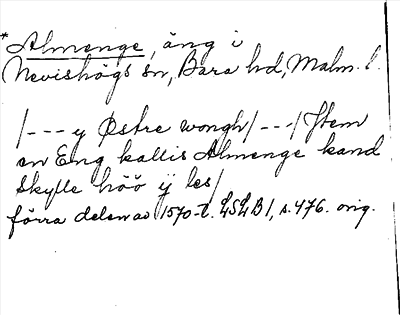 * Almenge, äng i
Nevishögs sn, Bara hd, Malm. l.
/--- y Østre wongh/---/Item
en Eng kallis Almenge kand
Skylle höö ÿ les/
förra delen av 1570-t. LSLB1, s. 476. orig.